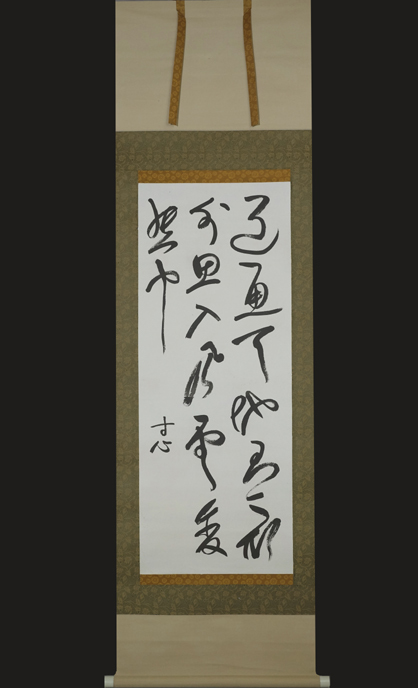 道通天地有形
外思入風雲変
態中